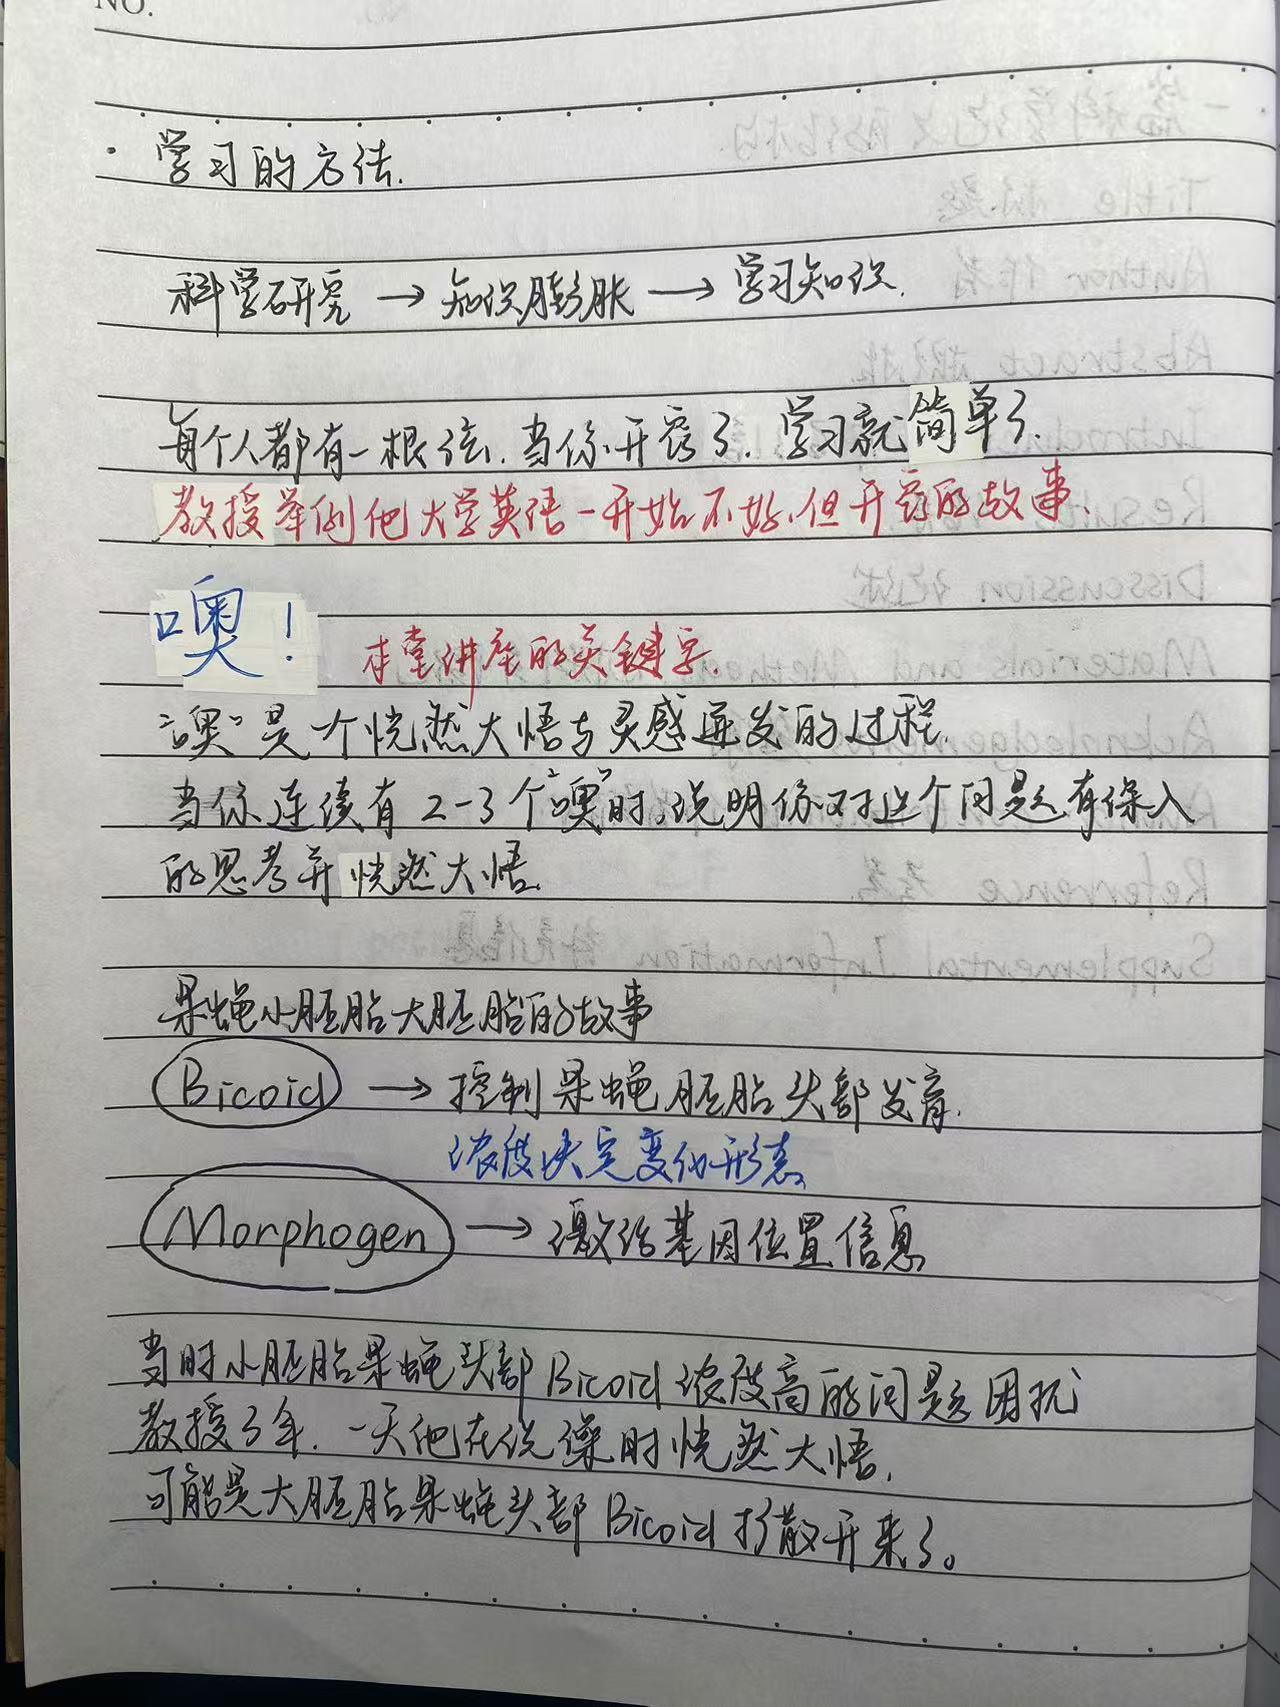 NO.
· 学习的方法.
科学研究 → 知识膨胀 → 学习知识.
每个人都有一根弦.当你开窍了.学习就简单了.
教授举例他大学英语一开始不好.但开窍的故事.
噢!
本堂讲座的关键字.
“噢”是一个恍然大悟与灵感迸发的过程.
当你连续有2-3个“噢”时,说明你对这个问题有深入
的思考并恍然大悟.
果蝇小胚胎大胚胎的故事
Bicoid → 控制果蝇胚胎头部发育.
浓度决定变化形态.
Morphogen → 激活基因位置信息
当时小胚胎果蝇头部Bicoid浓度高的问题困扰
教授3年.一天他在洗澡时恍然大悟.
可能是大胚胎果蝇头部Bicoid扩散开来了。